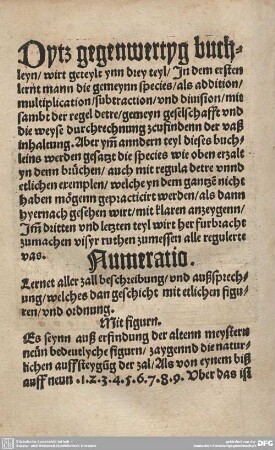 Dytz gegenwertyg buch-
leyn/wirt geteylt ynn drey teyl/In dem ersten
lernt mann die gemeynn species/als addition/
multiplication/subtraction/vnd division/mit
sambt der regel detre/gemeyn geselschafft vnd
die weyse durchrechnung zcufindenn der vaß
inhaltung. Aber ym anndern teyl dieses buch-
leins werden gesatzt die species wie oben erzalt
yn denn brüchen/auch mit regula detre vnnd
etlichen exemplen/welche yn dem gantzē nicht
haben mögenn gepracticirt werden/als dann
hyernach gesehen wirt/mit klaren anzeygenn/
Im dritten vnd letzten teyl wirt her furbracht
zumachen visyr ruthen zumessen alle regulerte
vas.
Numeratio.
Lernet aller zall beschreibung/vnd außsprech-
ung/welches dan geschicht mit etlichen figu-
ren/vnd ordnung.
Mit figurn.
Es seynn auß erfindung der altenn meystern
neün bedeutlyche figurn/zaygennd die natur-
lichen auffsteygūg der zal/Als von eynem biß
auff neun .1.2.3.4.5.6.7.8.9. Vber das ist